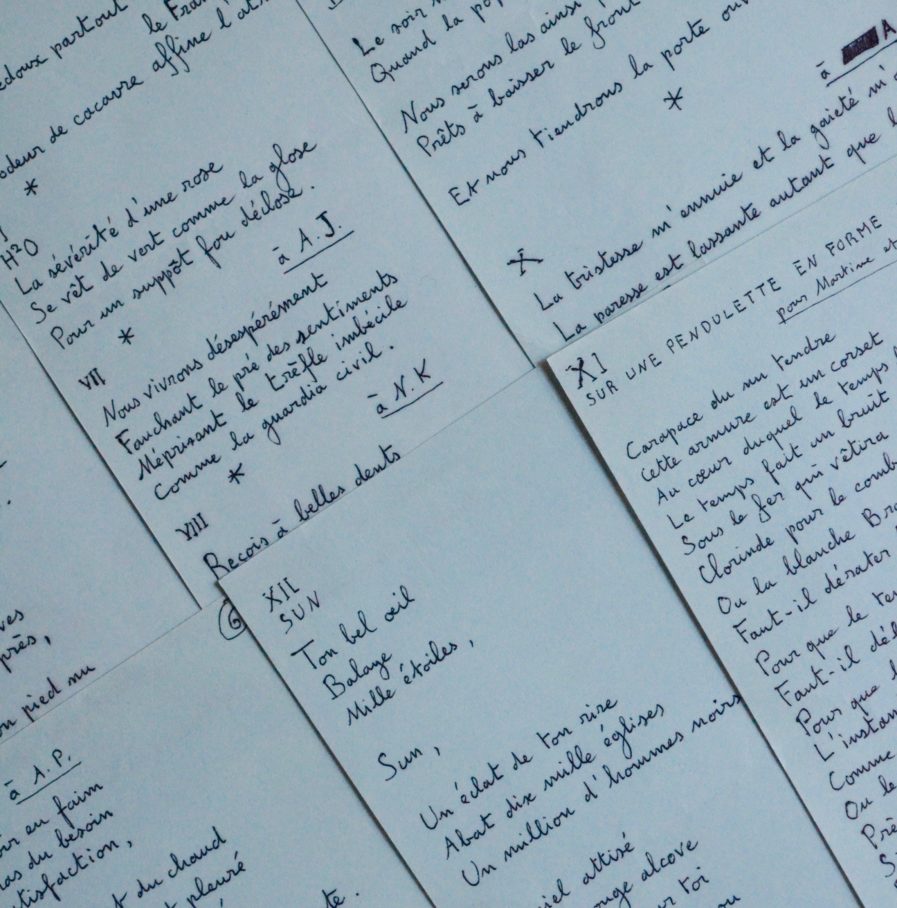 partout
le
de cacavre affine
*
H²O
La sévérité d'une rose
Se vêt de vert comme la glose
Pour un suppôt fou déclose.
*
à A.J.
VII
Nous vivrons désespérément
Fauchant le pré des sentiments
Méprisant le trèfle imbécile
Comme la guardia civil.
*
à N.K
VIII
Reçois à belles dents
Le soir
Quand la
Nous serons las ainsi
Prêts à baisser le front
Et nous tiendrons la porte
*
à A
X
La tristesse m'ennuie et la gaieté m'
La paresse est lassante autant que
XI
SUR UNE PENDULETTE EN FORME
pour Martine et
Carapace du nu tendre
Cette armure est un corset
Au cœur duquel le temps
Le temps fait un bruit
Sous le fer qui vêtira
Clorinde pour le
Ou la blanche
Faut-il dérater
Pour que le
Faut-il
Pour que
Comme
Ou le
XII
SUN
Ton bel œil
Balaye
Mille étoiles,
Sun,
Un éclat de ton rire
Abat dix mille églises
Un million d'hommes noirs
attisé
alcove
toi
près,
pied nu
6
à A.P.
faim
du besoin
du chaud
pleuré